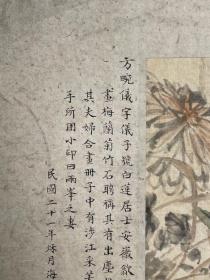 方畹儀字儀子號白蓮居士安徽歙
畫梅蘭菊竹石聘稱其有出塵
其夫婦合畫冊子中有涉江采
手所用小印曰兩峯之妻
民國二十一年
月海